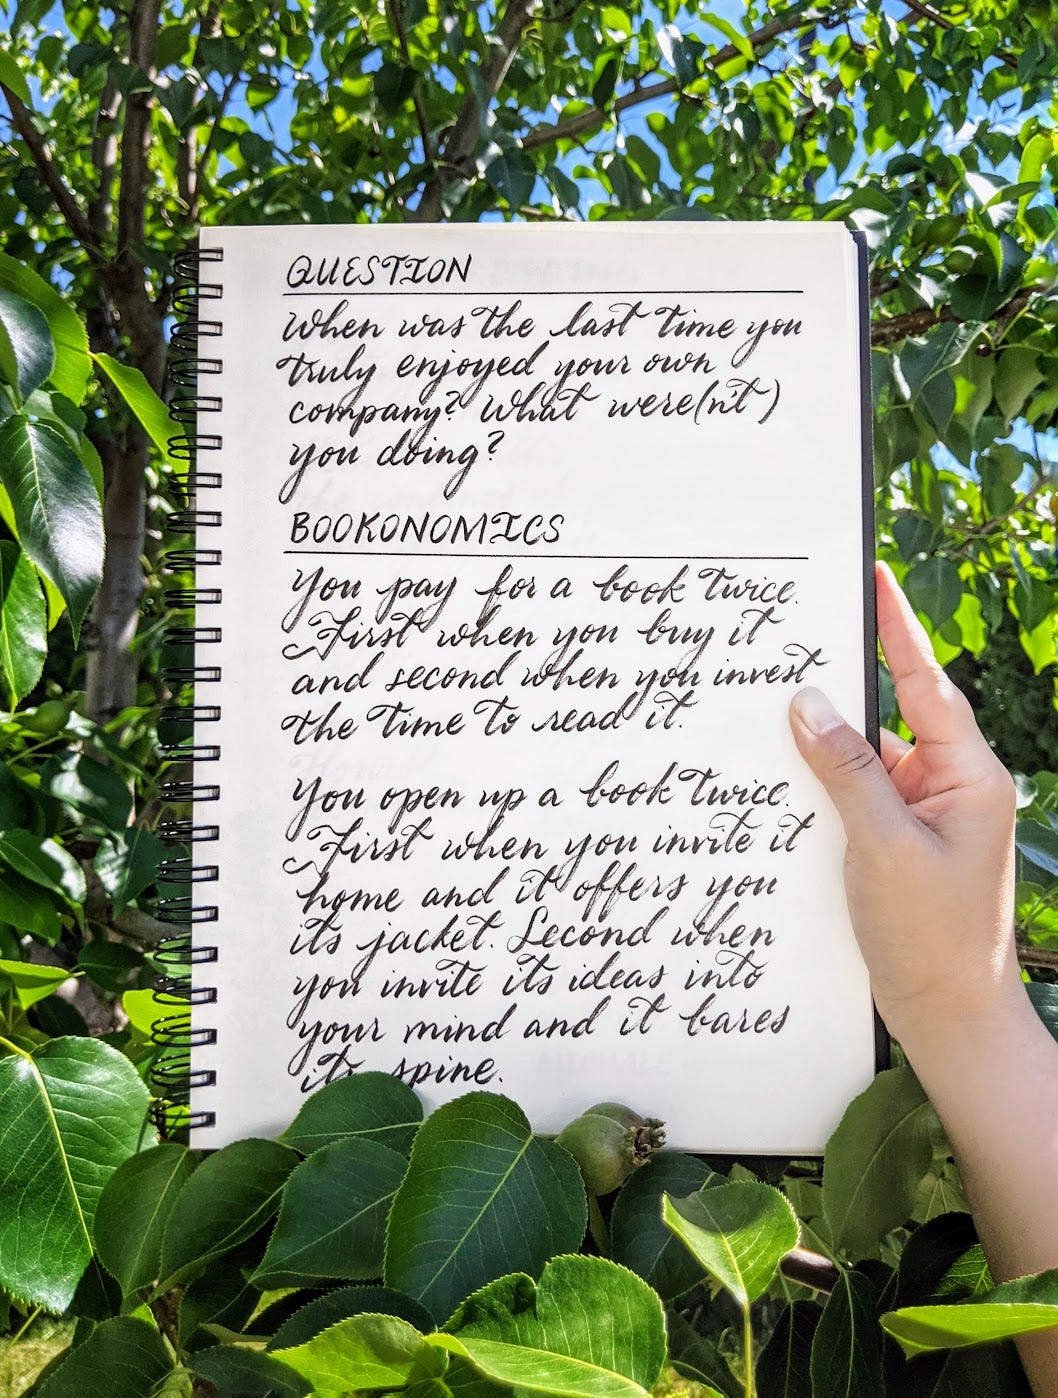 QUESTION
When was the last time you
truly enjoyed your own
company? What were(n't)
you doing?
BOOKONOMICS
You pay for a book twice.
First when you buy it
and second when you invest
the time to read it.
You open up a book twice.
First when you invite it
home and it offers you
its jacket. Second when
you invite its ideas into
your mind and it bares
its spine.